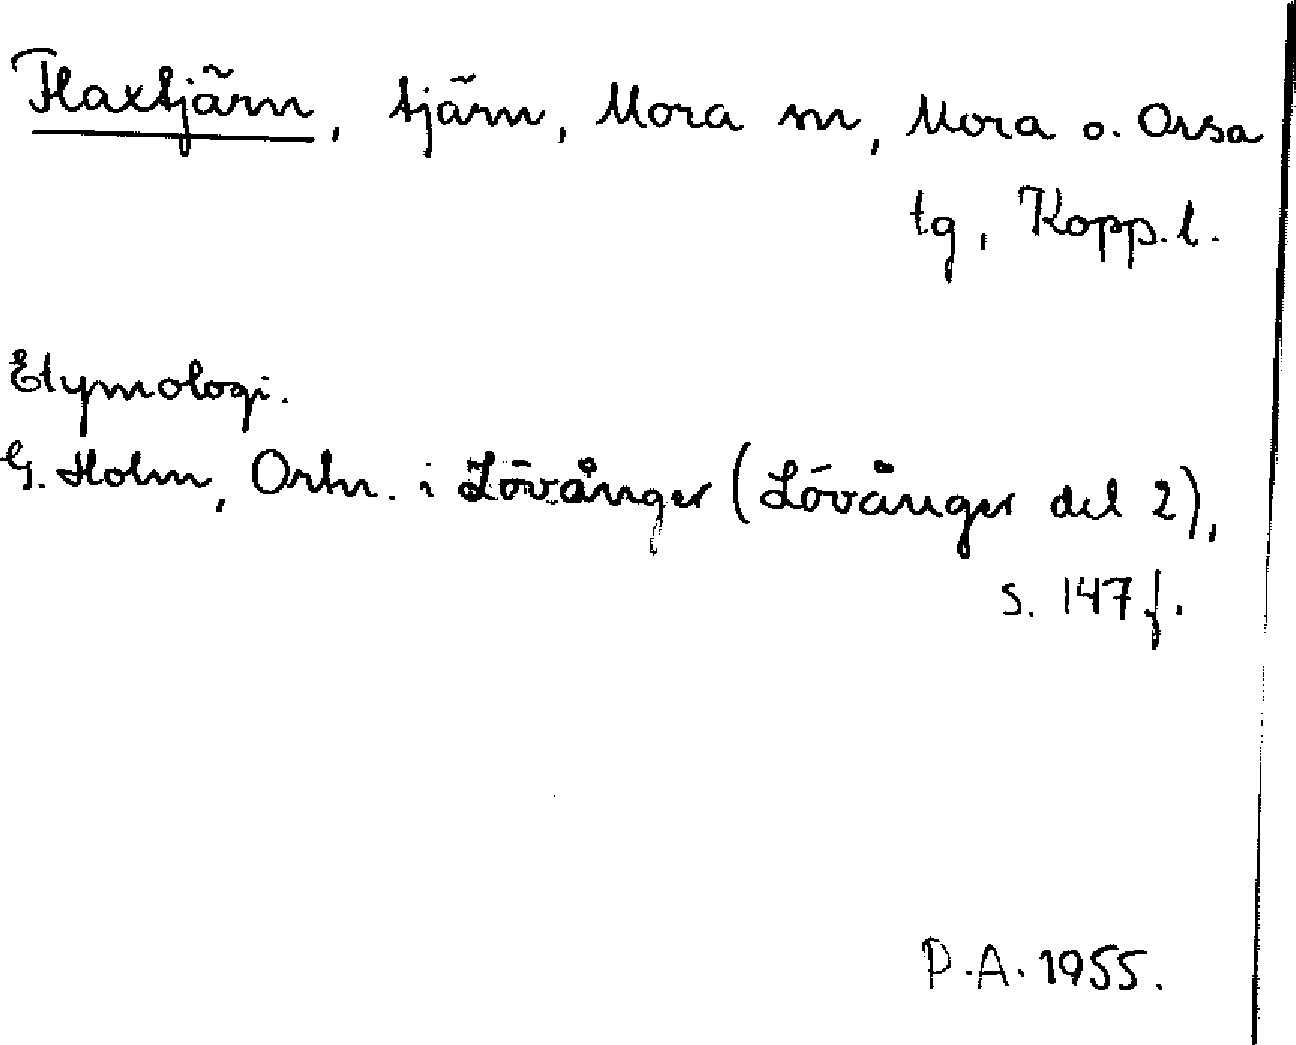 Flaxtjärn, tjärn, Mora sn, Mora o. Orsa
tg, Kopp. l.
Etymologi.
G. Holm, Ortn. i Lövånger (Lövånger del 2),
s. 147 f.
P.A. 1955.